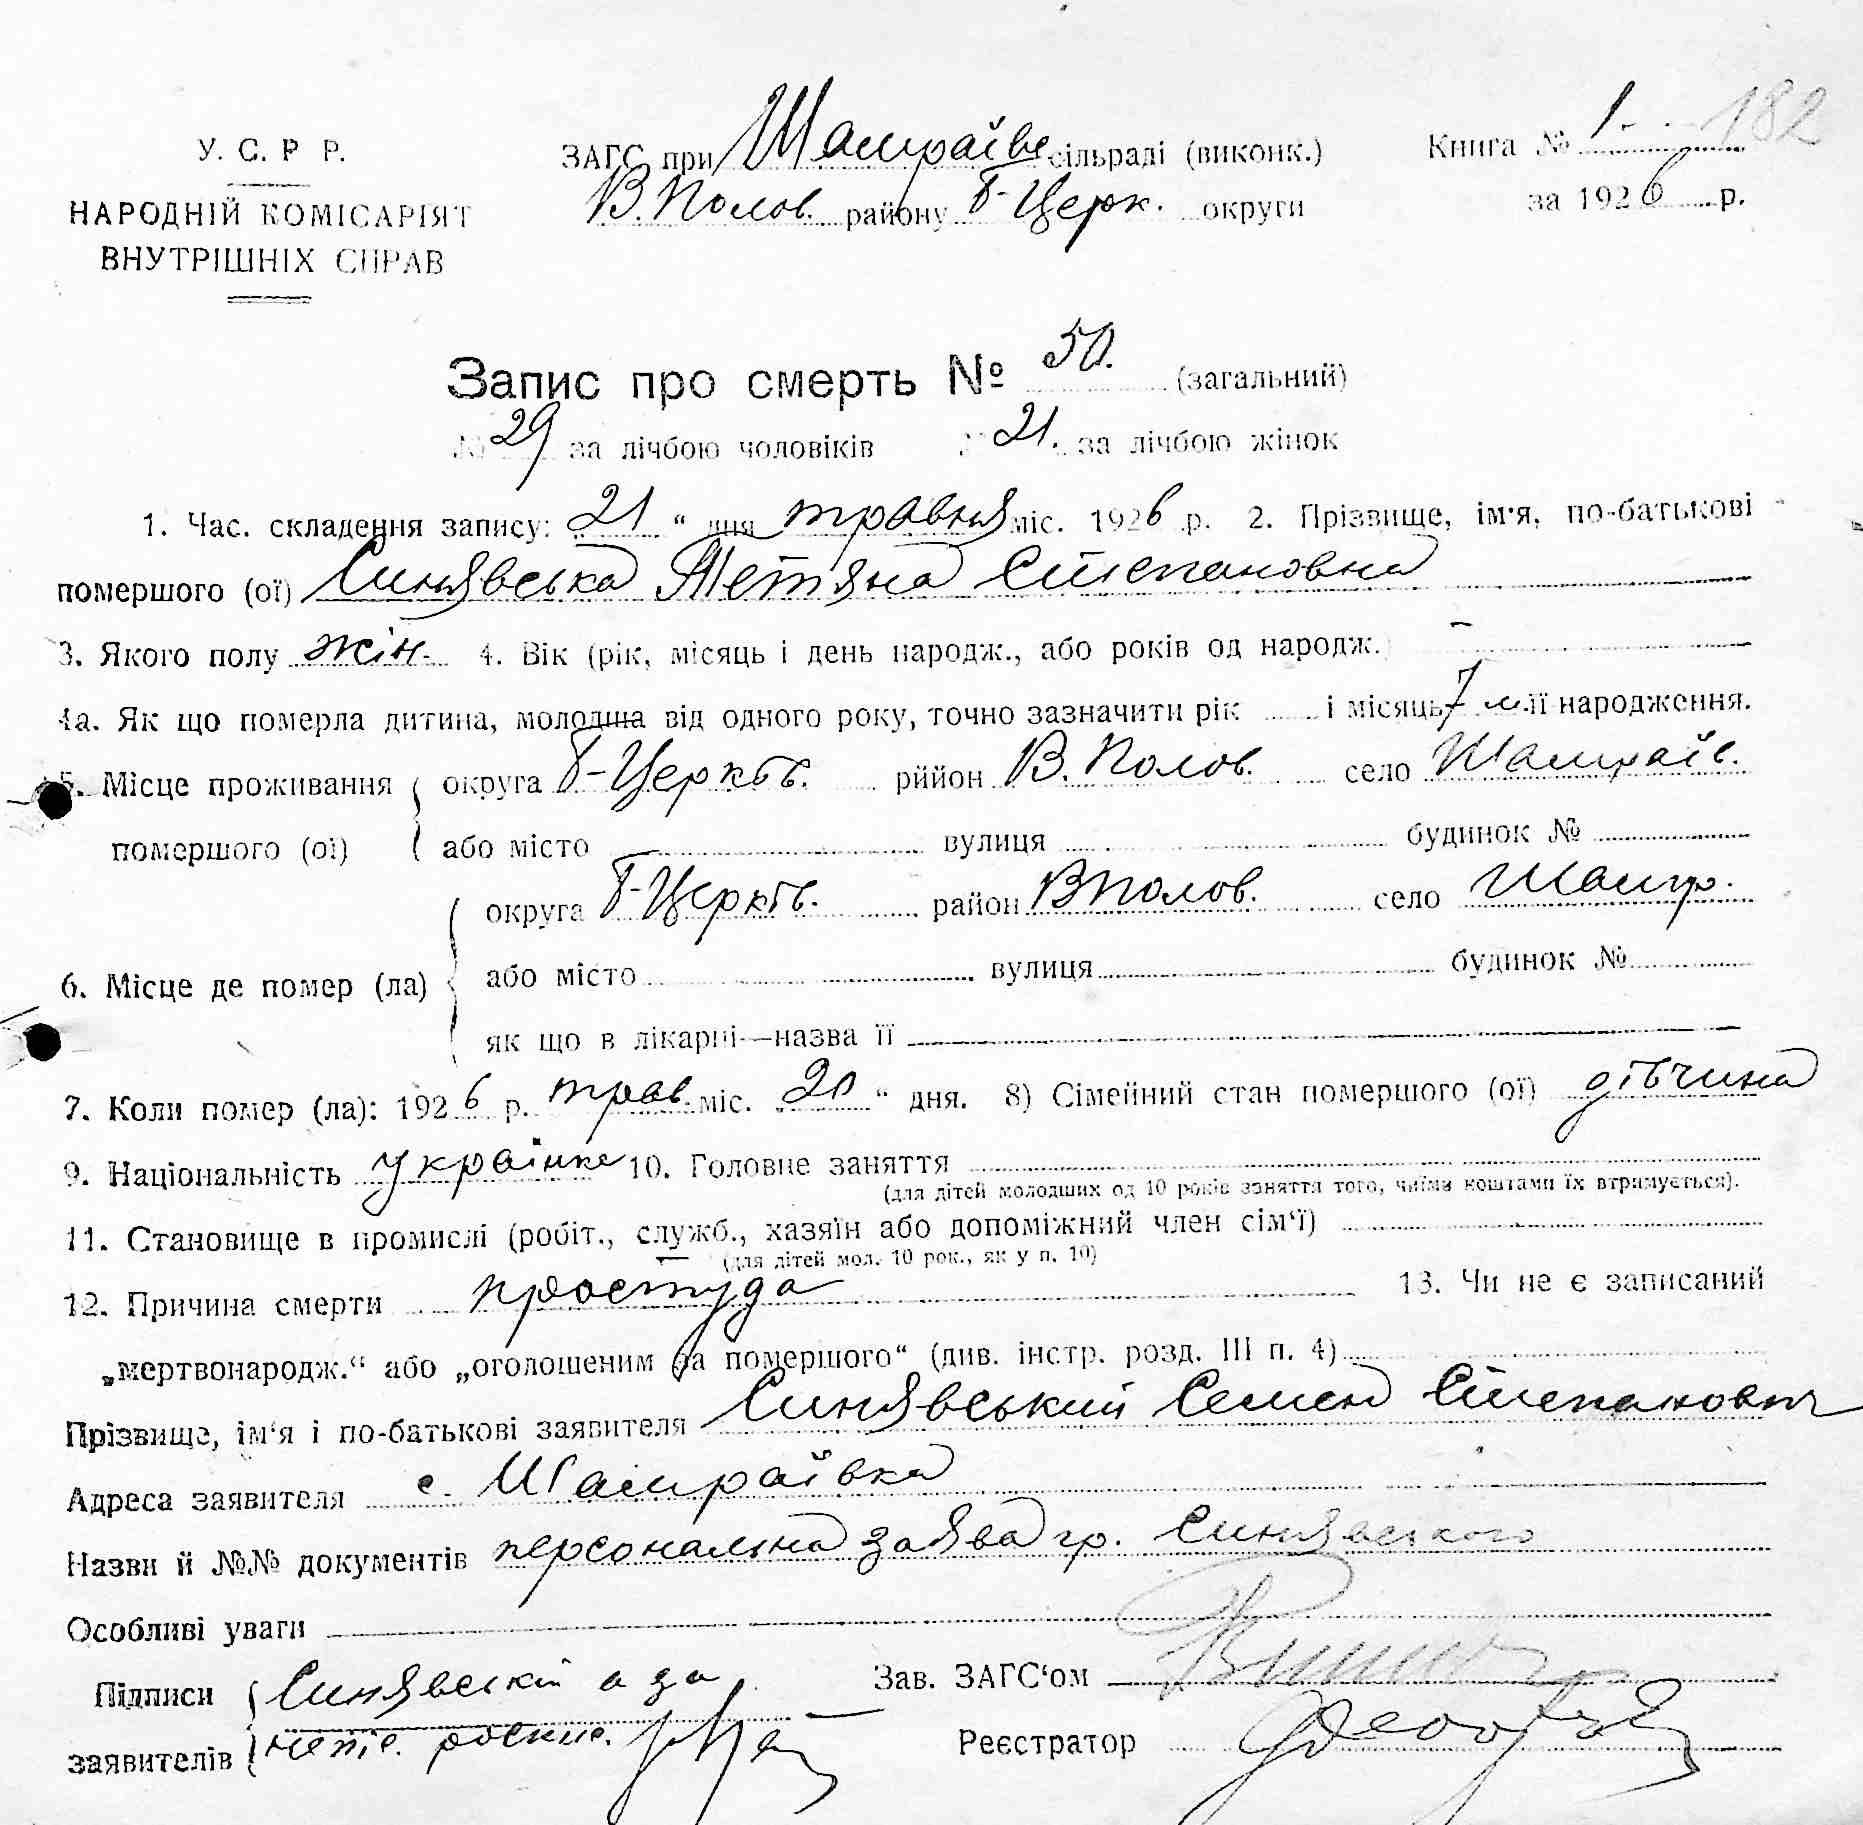 У. С. Р Р.
НАРОДНІЙ КОМІСАРІЯТ
ВНУТРІШНІХ СПРАВ
ЗАГС при Шамраївс сільраді (виконк.)
В. Полов. району Б-Церк. округи
Книга № 1. 182
за 1926 р.
Запис про смерть № 50. (загальний)
№ 29 за лічбою чоловіків № 21. за лічбою жінок
1. Час. складення запису: 21 “ дня травня міс. 1926 р. 2. Прізвище, ім'я, по-батькові
помершого (ої) Синявська Тетяна Степановна
3. Якого полу жін. 4. Вік (рік, місяць і день народж., або років од народж.) –
4а. Як що померла дитина, молодша від одного року, точно зазначити рік і місяць 7 м. її народження.
5. Місце проживання помершого (ої) округа Б-Церків. рййон В. Полов. село Шамраїв.
або місто вулиця будинок №
6. Місце де помер (ла) округа Б-Церків. район В Полов. село Шамр.
або місто вулиця будинок №
як що в лікарні—назва її
7. Коли помер (ла): 1926 р. трав. міс. „20“ дня. 8) Сімейний стан помершого (ої) дівчина
9. Національність українка 10. Головне заняття
(для дітей молодших од 10 років заняття того, чиїми коштами їх втримується).
11. Становище в промислі (робіт., служб., хазяїн або допоміжний член сім‘ї)
(для дітей мол. 10 рок., як у п. 10)
12. Причина смерти простуда 13. Чи не є записаний
„мертвонародж.“ або „оголошеним за помершого“ (див. інстр. розд. III п. 4)
Прізвище, ім‘я і по-батькові заявителя Синявський Семен Степанович
Адреса заявителя с. Шамраївка
Назви й №№ документів персональна заява гр. Синявського
Особливі уваги
Підписи заявителів Синявський а за
Зав. ЗАГС‘ом
Реєстратор